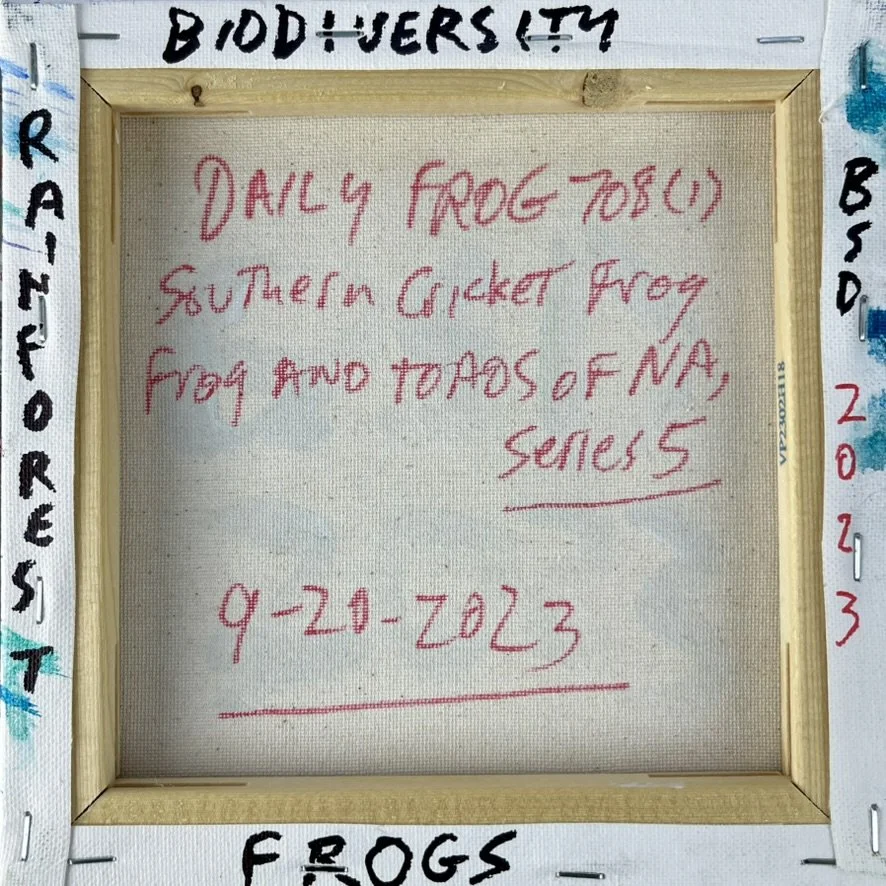 BIODIVERSITY
RAINFOREST
DAILY FROG 708(1)
Southern Cricket Frog
Frog AND TOADS OF NA,
Series 5
9-20-2023
VP2302H18
BSD 2023
FROGS